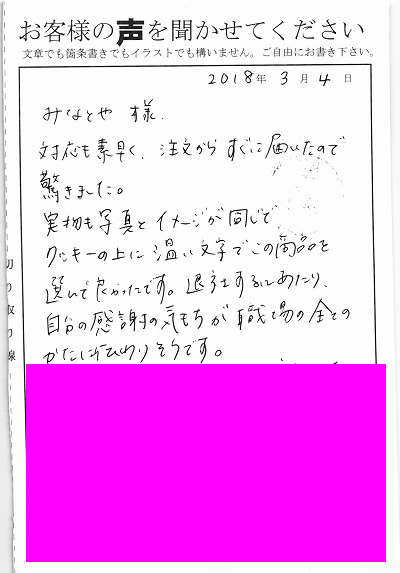 お客様の声を聞かせてください
文章でも箇条書きでもイラストでも構いません。ご自由にお書き下さい。
2018年 3月 4日
みなとや 様
対応も素早く、注文からすぐに届いたので
驚きました。
実物も写真とイメージが同じで
クッキーの上に温い文字でこの商品を
選んで良かったです。退社するにあたり、
自分の感謝の気もちが職場の全ての
かたに伝わりそうです。
切り取り線